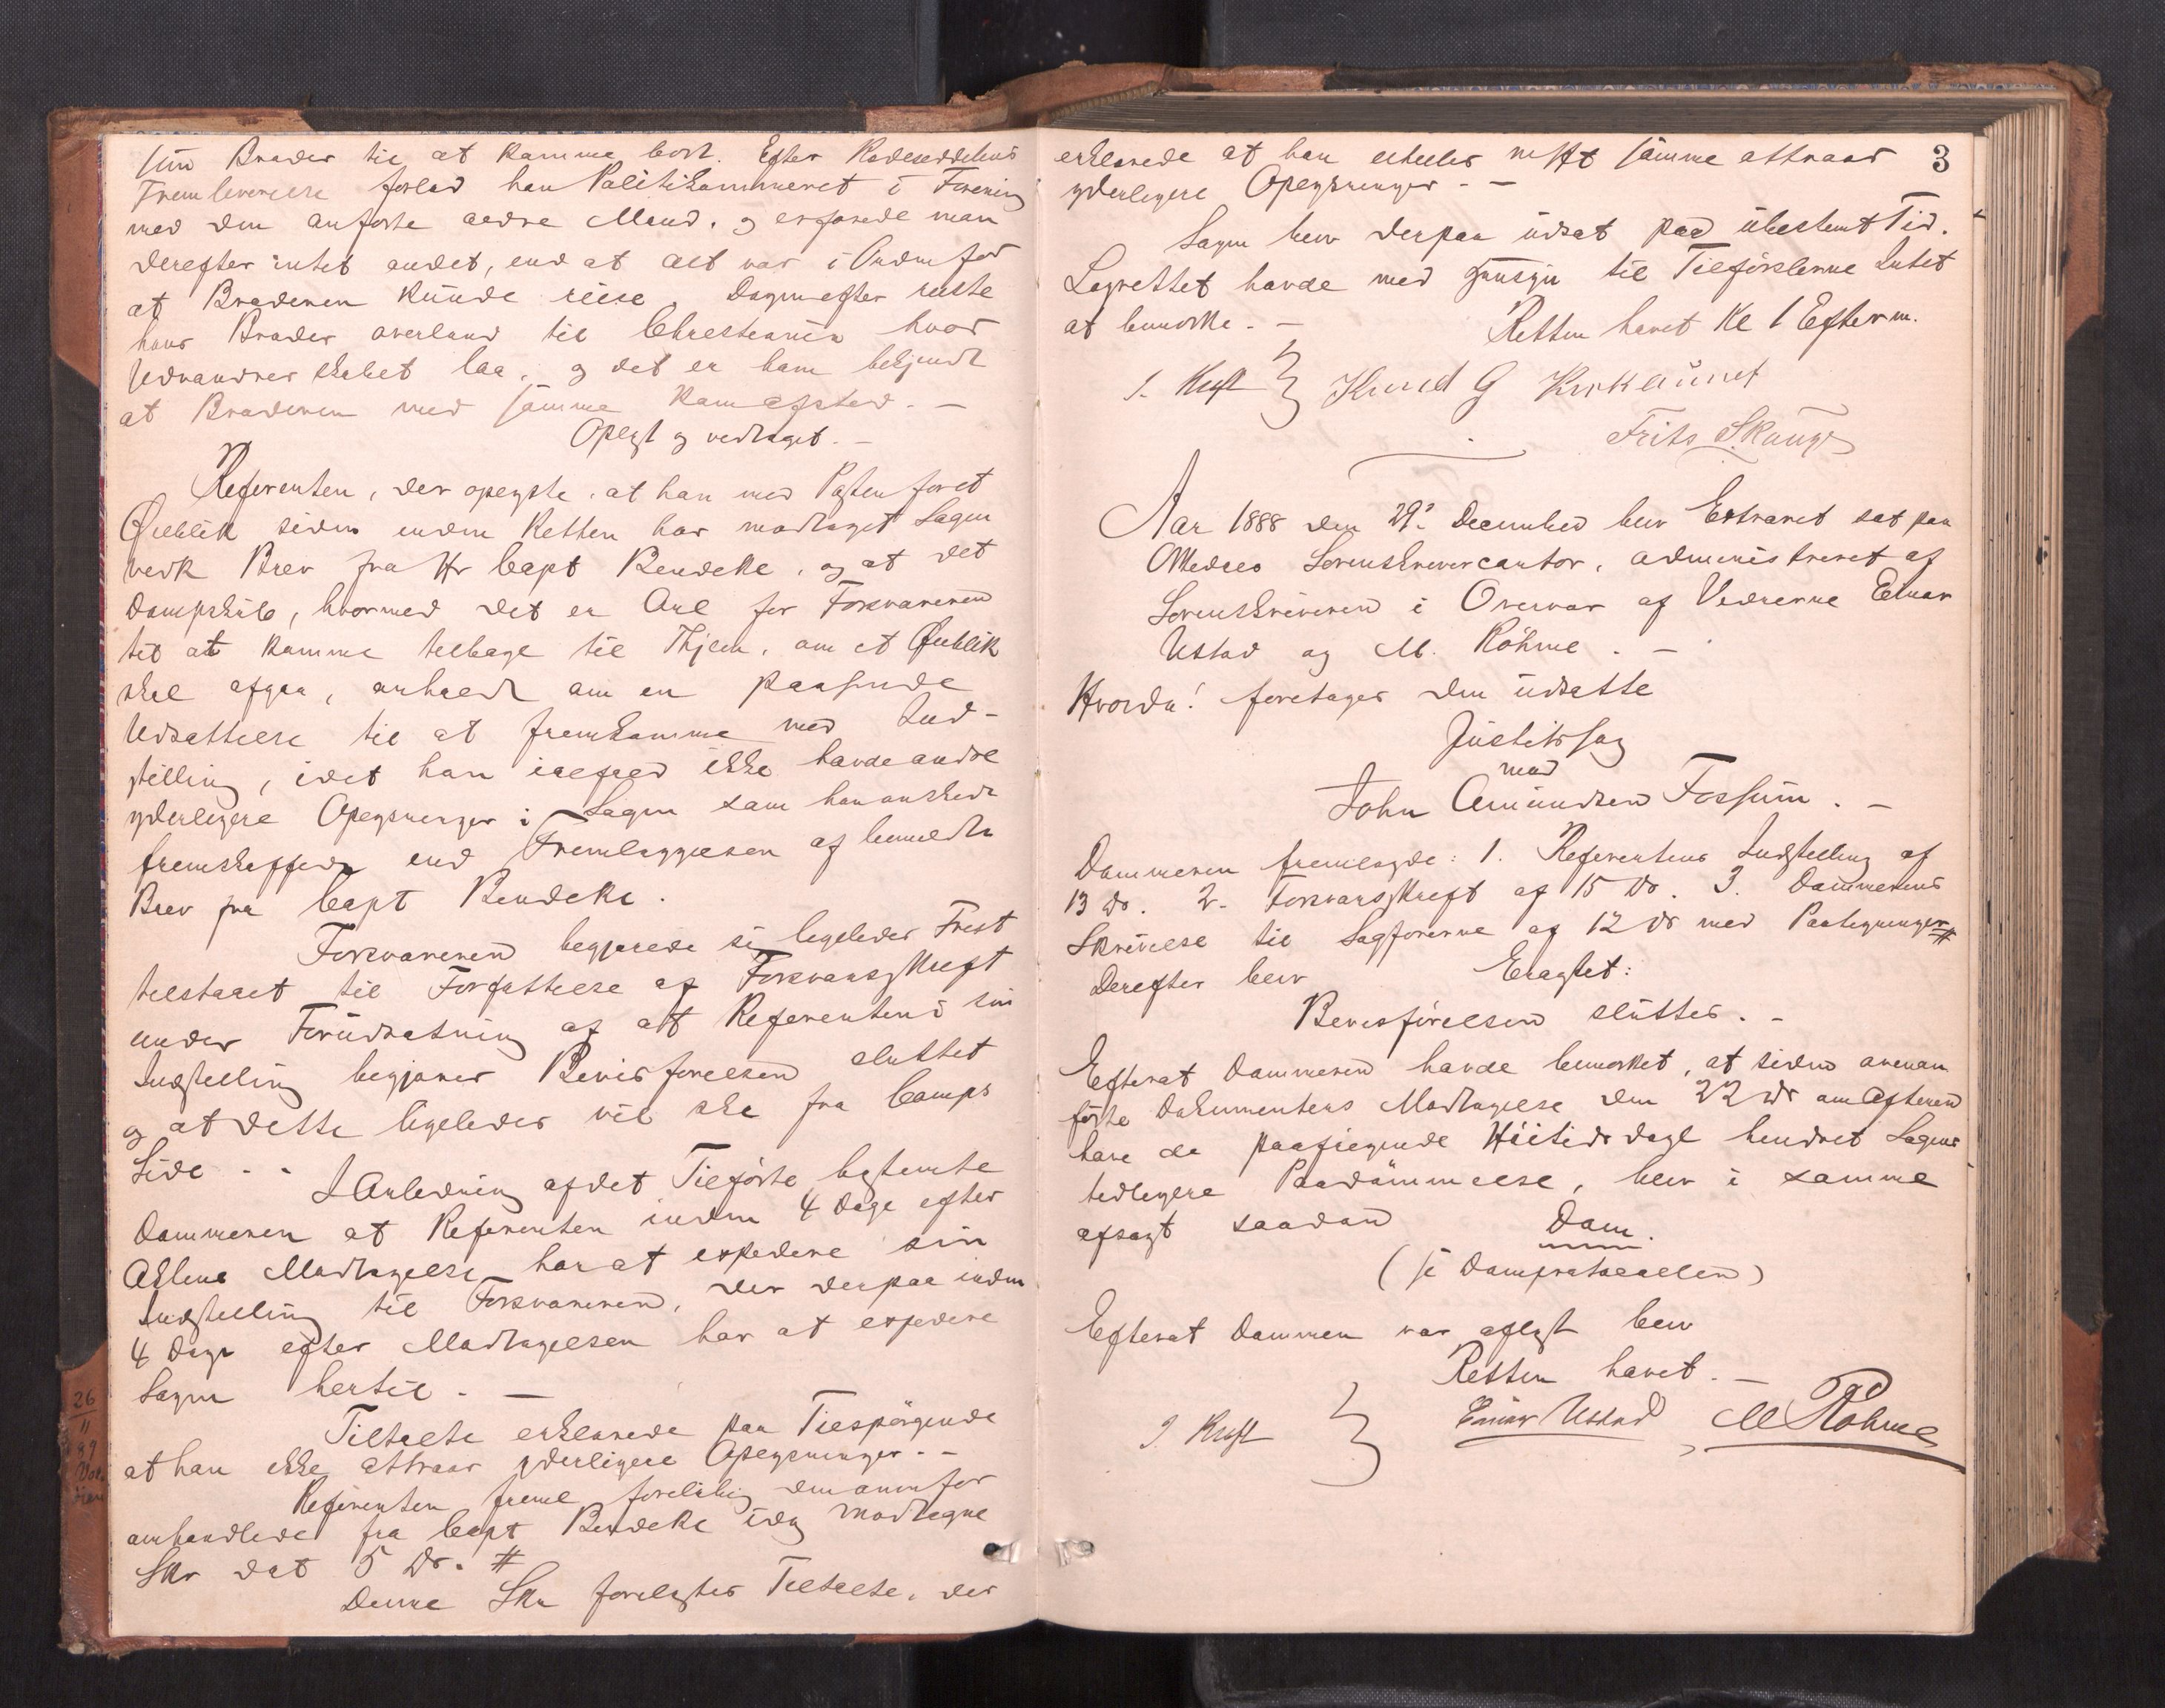 sin Broder til at komme bort. Efter Kodeseddelens
Fremleverelse forlod han Politikammeret i Forening
med den anførte ældre Mand, og erfarede man
derefter intet andet, end at alt var i Orden for
at Broderen kunde reise, Dagen efter reiste
hans Broder overland til Christiania hvor
Udvandrerskibet laa, og det er ham bekjendt
at Broderen med samme kom afsted. —
Oplæst og vedtaget. —
Referenten, der oplyste, at han med Posten foret
Øieblik siden inden Retten har modtaget Sagen
vedk Brev fra Hr Capt Bendeke, og at det
Dampskib, hvormed det er Anl for Forsvareren
til at komme tilbage til Thjem, om et Øieblik
skal afgaa, anholdt om en passende
Udsættelse til at fremkomme med Ind-
stilling, idet han ialfald ikke havde andre
yderligere Oplysninger i Sagen som han ønsked
fremskaffede end Fremlæggelsen af bemeldte
Brev fra Capt Bendeke.
Forsvareren begjærede sig ligeledes Frist
tilstaaet til Forfattelse af Forsvarsskrift
under Forudsætning af at Referenten i sin
Indstilling begjærer Bevisførelsen sluttet
og at dette ligeledes vil ske fra Comps
Side. -
I Anledning af det Tilførte bestemte
Dommeren at Referenten inden 4 Dage efter
Aktens Modtagelse har at expedere sin
Indstilling til Forsvareren, der derpaa inden
4 Dage efter Modtagelsen har at expedere
Sagen hertil. —
Tiltalte erklærede paa Tilspørgende
at han ikke attraar yderligere Oplysninger. -
Referenten freml foreløbig den ovenfor
omhandlede fra Capt Bendeke idag modtagne
Skr dat 5 ds. #
Denne Skr forelæstes Tiltalte, der
3
erklærede at han eiheller mht samme attraar
yderligere Oplysninger. —
Sagen blev derpaa udsat paa ubestemt Tid.
Lagrettet havde med Hensyn til Tilførslerne Intet
at bemærke. —
Retten hævet Kl 1 Efterm.
Knud G Kirkaunet
Frits Skauge
Aar 1888 den 29: December blev Extraret sat paa
Sorenskrivercontor, administreret af
Sorenskriveren i Overvær af Vidnerne Einar
Ustad og M. Röhme. —
Hvorda! foretages den udsatte
Justitssag
mod
John Amundsen Fossum. —
Dommeren fremlagde: 1. Referentens Indstilling af
13 ds. 2. Forsvarsskrift af 15 ds. 3. Dommerens
Skrivelse til Sagførerne af 12 ds med Paategninger #
Derefter blev Eragtet:
Bevisførelsen sluttes. -
Efterat Dommeren havde bemærket, at siden ovenan
førte Dokumenters Modtagelse den 22 ds om Aftenen
have de paafølgende Høitidsdage hindret Sagens
tidligere Paadømmelse, blev i samme
afsagt saadan Dom.
(se Domprotocollen)
Efterat Dommen var oplæst blev
Retten hævet. —
Einar Ustad, M Röhme